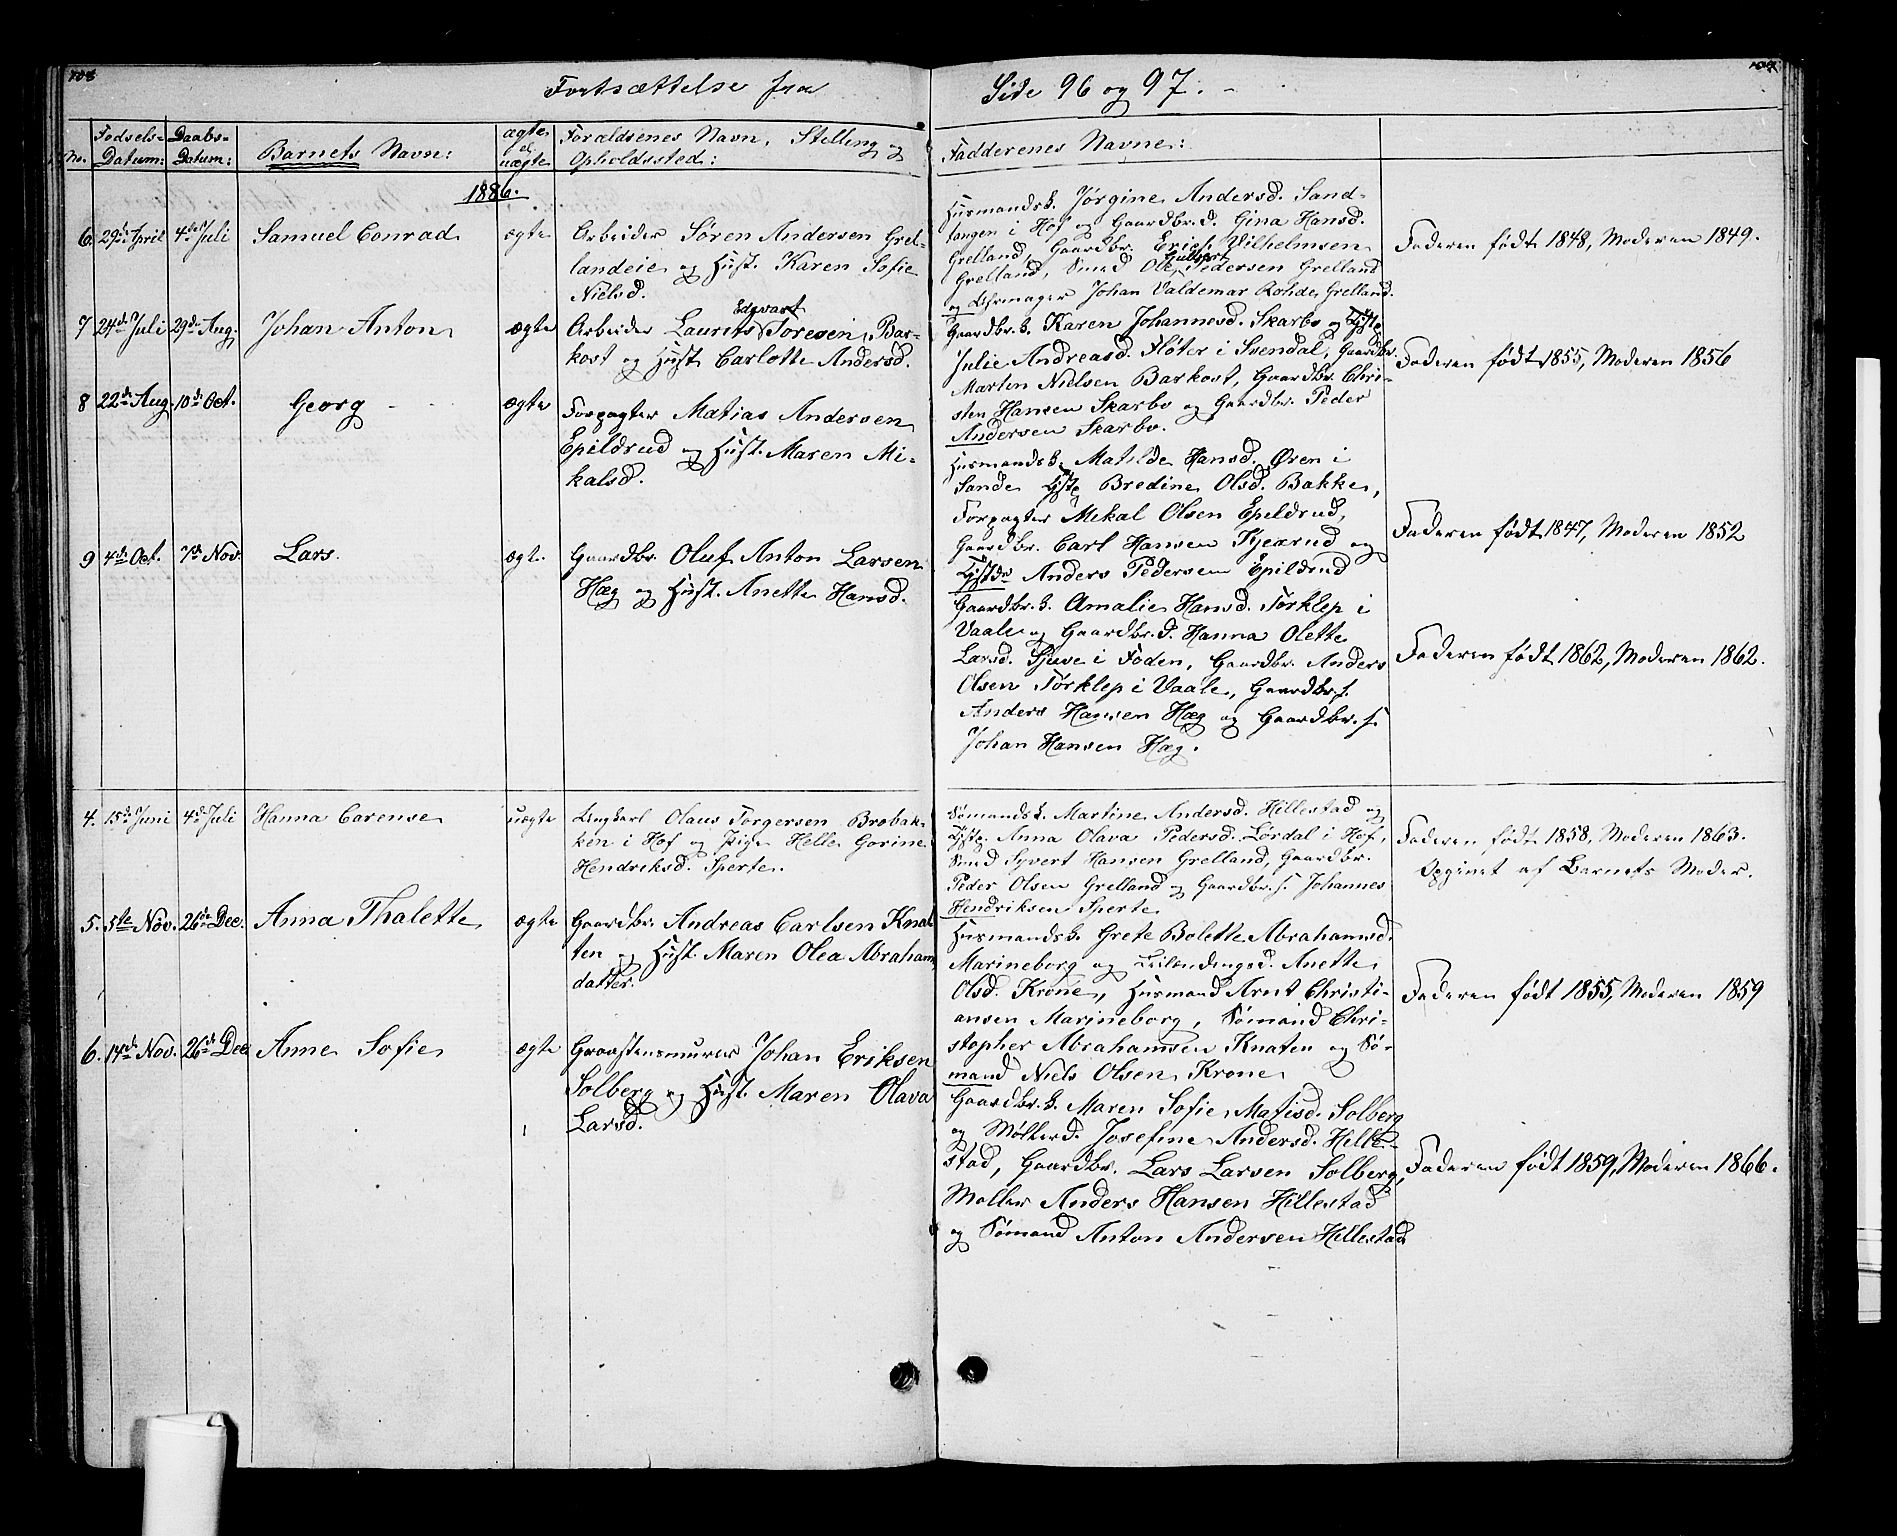 108
Fortsættelse fra Side 96 og 97.
No.
Fødsels-
Datum:
Daabs-
Datum:
Barnets Navn:
ægte
el.
uægte
Forældrenes Navn, Stilling og
Opholdssted:
Faddernes Navne:
1886.
6. 29de April 4de Juli Samuel Conrad ægte
Arbeider Søren Andersen Grel-
landeie og Hust. Karen Sofie
Nielsd.
Husmandsk. Jørgine Andersd. Sand-
tangen i Hof og Gaardbr.d. Gina Hansd.
Grelland, Gaardbr. Erich Vilhelmsen
Grelland, Smed Ole Gulbert Pedersen Grelland
og Uhrmager Johan Valdemar Rohde, Grelland.
Faderen født 1848, Moderen 1849.
7 24de Juli 29de Aug. Johan Anton ægte
Arbeider Laurits Edevart Toresen, Bar-
kost og Hust. Carlotte Andersd.
Gaardbr.k. Karen Johannesd. Skarbo og Pige
Julie Andreasd. Fløter i Svendal, Gaardbr.
Martin Nielsen Barkost, Gaardbr. Chri-
sten Hansen Skarbo og Gaardbr. Peder
Andersen Skarbo.
Faderen født 1855, Moderen 1856
8 22de Aug. 10de Oct. Georg ægte
Forpagter Matias Andersen
Epildrud og Hust. Maren Mi-
kalsd.
Husmandsk. Matilde Hansd. Øren i
Sande Pige Bredine Olsd. Bakke,
Forpagter Mekal Olsen Epildrud,
Gaardbr. Carl Hansen Tjærud og
Anders Pedersen Epildrud
Faderen født 1847, Moderen 1852
9 4de Oct. 7de Nov. Lars. ægte.
Gaardbr. Oluf Anton Larsen
Hæg og Hust. Anette Hansd.
Gaardbr.k. Amalie Hansd. Torklep i
Vaale og Gaardbr.d. Hanna Olette
Larsd. Sjue i Foden, Gaardbr. Anders
Olsen Tørklep i Vaale, Gaardbr.s.
Anders Hansen Hæg og Gaardbr.s.
Johan Hansen Hæg.
Faderen født 1862, Moderen 1862.
4. 15de Juni 4de Juli Hanna Carense uægte
Ungkarl Olaus Torgersen Brobak-
ken i Hof og Pige Helle Gorine
Hendriksd. Sperte.
Sømandsk. Martine Andersd. Hillestad og
Pige Anna Olava Pedersd. Lørdal i Hof,
Smed Syvert Hansen Grelland, Gaardbr.
Peder Olsen Grelland og Gaardbr.s. Johannes
Hendriksen Sperte
Faderen født 1858, Moderen 1863.
Opgivet af Barnets Moder.
5. 5te Nov. 26de Dec. Anna Thalette ægte
Gaardbr. Andreas Carlsen Knat-
ten og Hust. Maren Olea Abraham
datter.
Husmandsk. Grete Bolette Abrahamsd.
Marineborg og Leilendingsd. Anette
Olsd. Krone, Husmand Arnt Christi-
ansen Marineborg, Sømand Chri-
stopher Abrahamsen Knaten og Sø-
mand Niels Olsen Krone
Faderen født 1855, Moderen 1859
6. 14de Nov. 26de Dec. Anne Sofie ægte
Graastensmurer Johan Eriksen
Solberg og Hust. Maren Olava
Larsd.
Gaardbr.k. Maren Sofie Matisd. Solberg
og Møllerd. Josefine Andersd. Hille-
stad, Gaardbr. Lars Larsen Solberg,
Møller Anders Hansen Hillestad
og Sømand Anton Andersen Hillestad
Faderen født 1859, Moderen 1866.